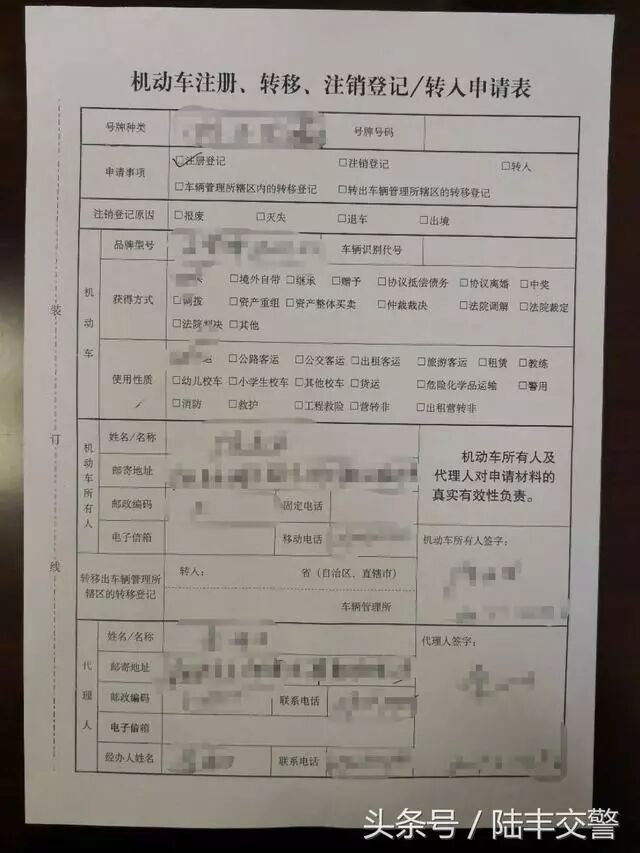 机动车注册、转移、注销登记/转入申请表
号牌种类 号牌号码
申请事项 □注册登记 □注销登记 □转入
□车辆管理所辖区内的转移登记 □转出车辆管理所辖区的转移登记
注销登记原因 □报废 □灭失 □退车 □出境
机动车
品牌型号 车辆识别代号
获得方式 □境外自带 □继承 □赠予 □协议抵偿债务 □协议离婚 □中奖
□调拨 □资产重组 □资产整体买卖 □仲裁裁决 □法院调解 □法院裁定
□法院判决 □其他
使用性质 □公路客运 □公交客运 □出租客运 □旅游客运 □租赁 □教练
□幼儿校车 □小学生校车 □其他校车 □货运 □危险化学品运输 □警用
□消防 □救护 □工程救险 □营转非 □出租营转非
机动车所有人
姓名/名称
邮寄地址
邮政编码 固定电话
电子信箱 移动电话
机动车所有人及
代理人对申请材料的
真实有效性负责。
机动车所有人签字:
转移出车辆管理所
辖区的转移登记
转入: 省(自治区、直辖市)
车辆管理所
代理人
姓名/名称
邮寄地址
邮政编码 联系电话
电子信箱
经办人姓名 联系电话
代理人签字:
装
订
线
头条号/陆丰交警